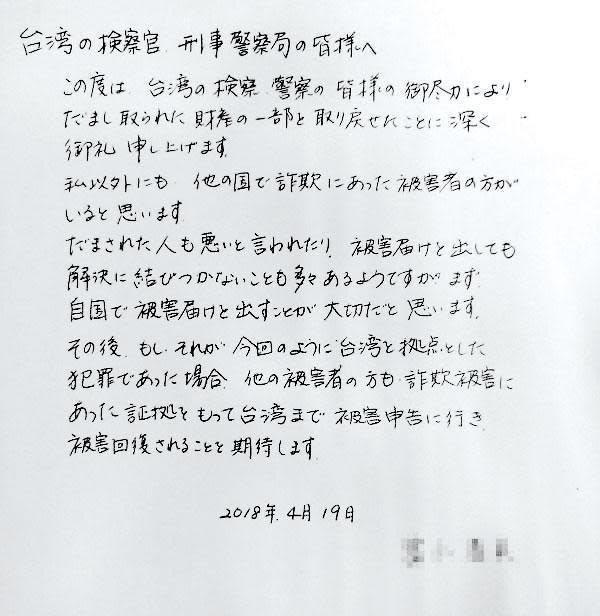 台湾の検察官 刑事警察局の皆様へ
この度は、台湾の検察 警察の皆様の御尽力により
だまし取られた財産の一部を取り戻せたことに深く
御礼申し上げます。
私以外にも 他の国で詐欺にあった被害者の方が
いると思います
だまされた人も悪いと言われたり、被害届けを出しても
解決に結びつかないことも多々あるようですが まず
自国で被害届けを出すことが大切だと思います。
その後、もし それが 今回のように台湾を拠点とした
犯罪であった場合、他の被害者の方も 詐欺被害に
あった証拠をもって台湾まで 被害申告に行き
被害回復されることを期待します
2018年 4月 19日